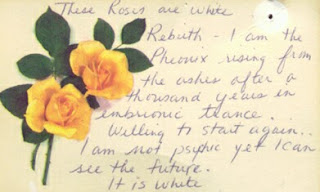 These Roses are white
Rebirth - I am the
Pheonix rising from
the ashes after a
thousand years in
embrionic trance.
Willing to start again..
I am not psychic yet I can
see the future.
It is white